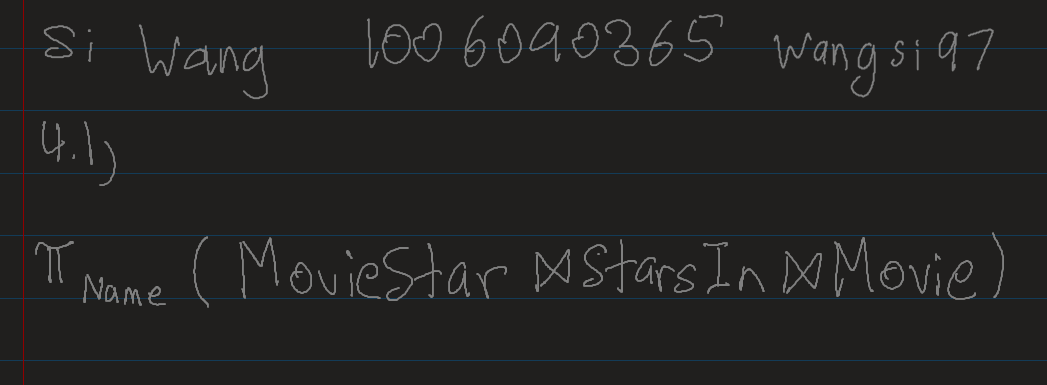 Si Wang 1006090365 wangsi97
4.1)
π Name (MovieStar ⋈ StarsIn ⋈ Movie)